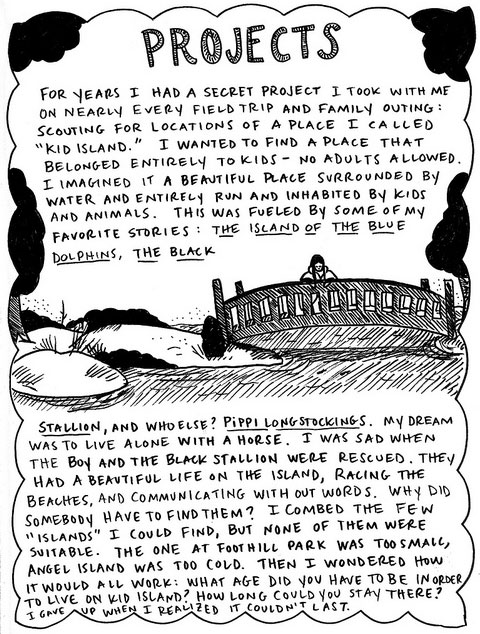 PROJECTS
FOR YEARS I HAD A SECRET PROJECT I TOOK WITH ME
ON NEARLY EVERY FIELD TRIP AND FAMILY OUTING:
SCOUTING FOR LOCATIONS OF A PLACE I CALLED
"KID ISLAND." I WANTED TO FIND A PLACE THAT
BELONGED ENTIRELY TO KIDS – NO ADULTS ALLOWED.
I IMAGINED IT A BEAUTIFUL PLACE SURROUNDED BY
WATER AND ENTIRELY RUN AND INHABITED BY KIDS
AND ANIMALS. THIS WAS FUELED BY SOME OF MY
FAVORITE STORIES: THE ISLAND OF THE BLUE
DOLPHINS, THE BLACK
STALLION, AND WHO ELSE? PIPPI LONGSTOCKINGS. MY DREAM
WAS TO LIVE ALONE WITH A HORSE. I WAS SAD WHEN
THE BOY AND THE BLACK STALLION WERE RESCUED. THEY
HAD A BEAUTIFUL LIFE ON THE ISLAND, RACING THE
BEACHES, AND COMMUNICATING WITH OUT WORDS. WHY DID
SOMEBODY HAVE TO FIND THEM? I COMBED THE FEW
"ISLANDS" I COULD FIND, BUT NONE OF THEM WERE
SUITABLE. THE ONE AT FOOTHILL PARK WAS TOO SMALL,
ANGEL ISLAND WAS TOO COLD. THEN I WONDERED HOW
IT WOULD ALL WORK: WHAT AGE DID YOU HAVE TO BE IN ORDER
TO LIVE ON KID ISLAND? HOW LONG COULD YOU STAY THERE?
I GAVE UP WHEN I REALIZED IT COULDN'T LAST.